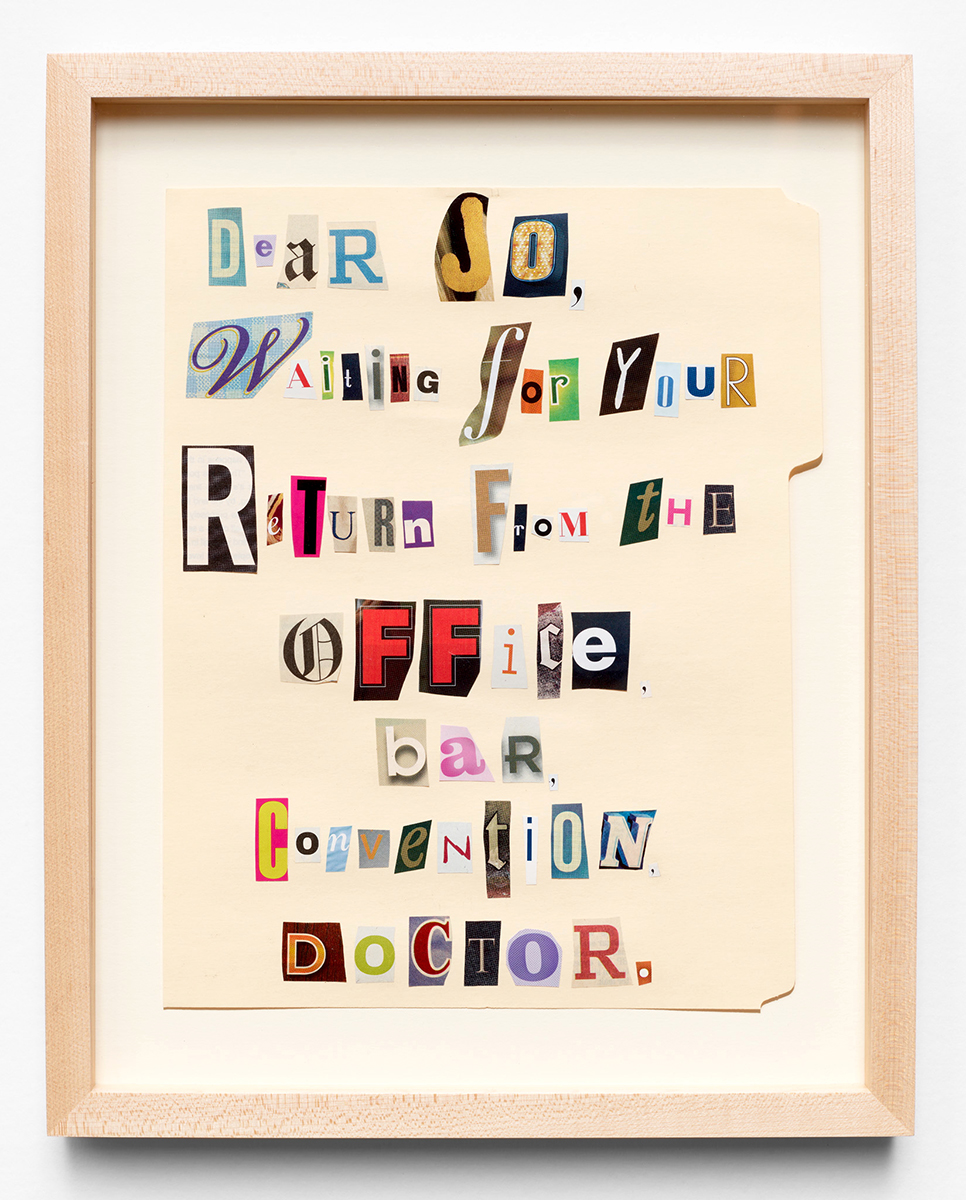 DeaR JO,
WAitiNG for YOUR
ReTURn FroM tHE
OFFice,
baR,
ConveNtiON,
DOCTOR.